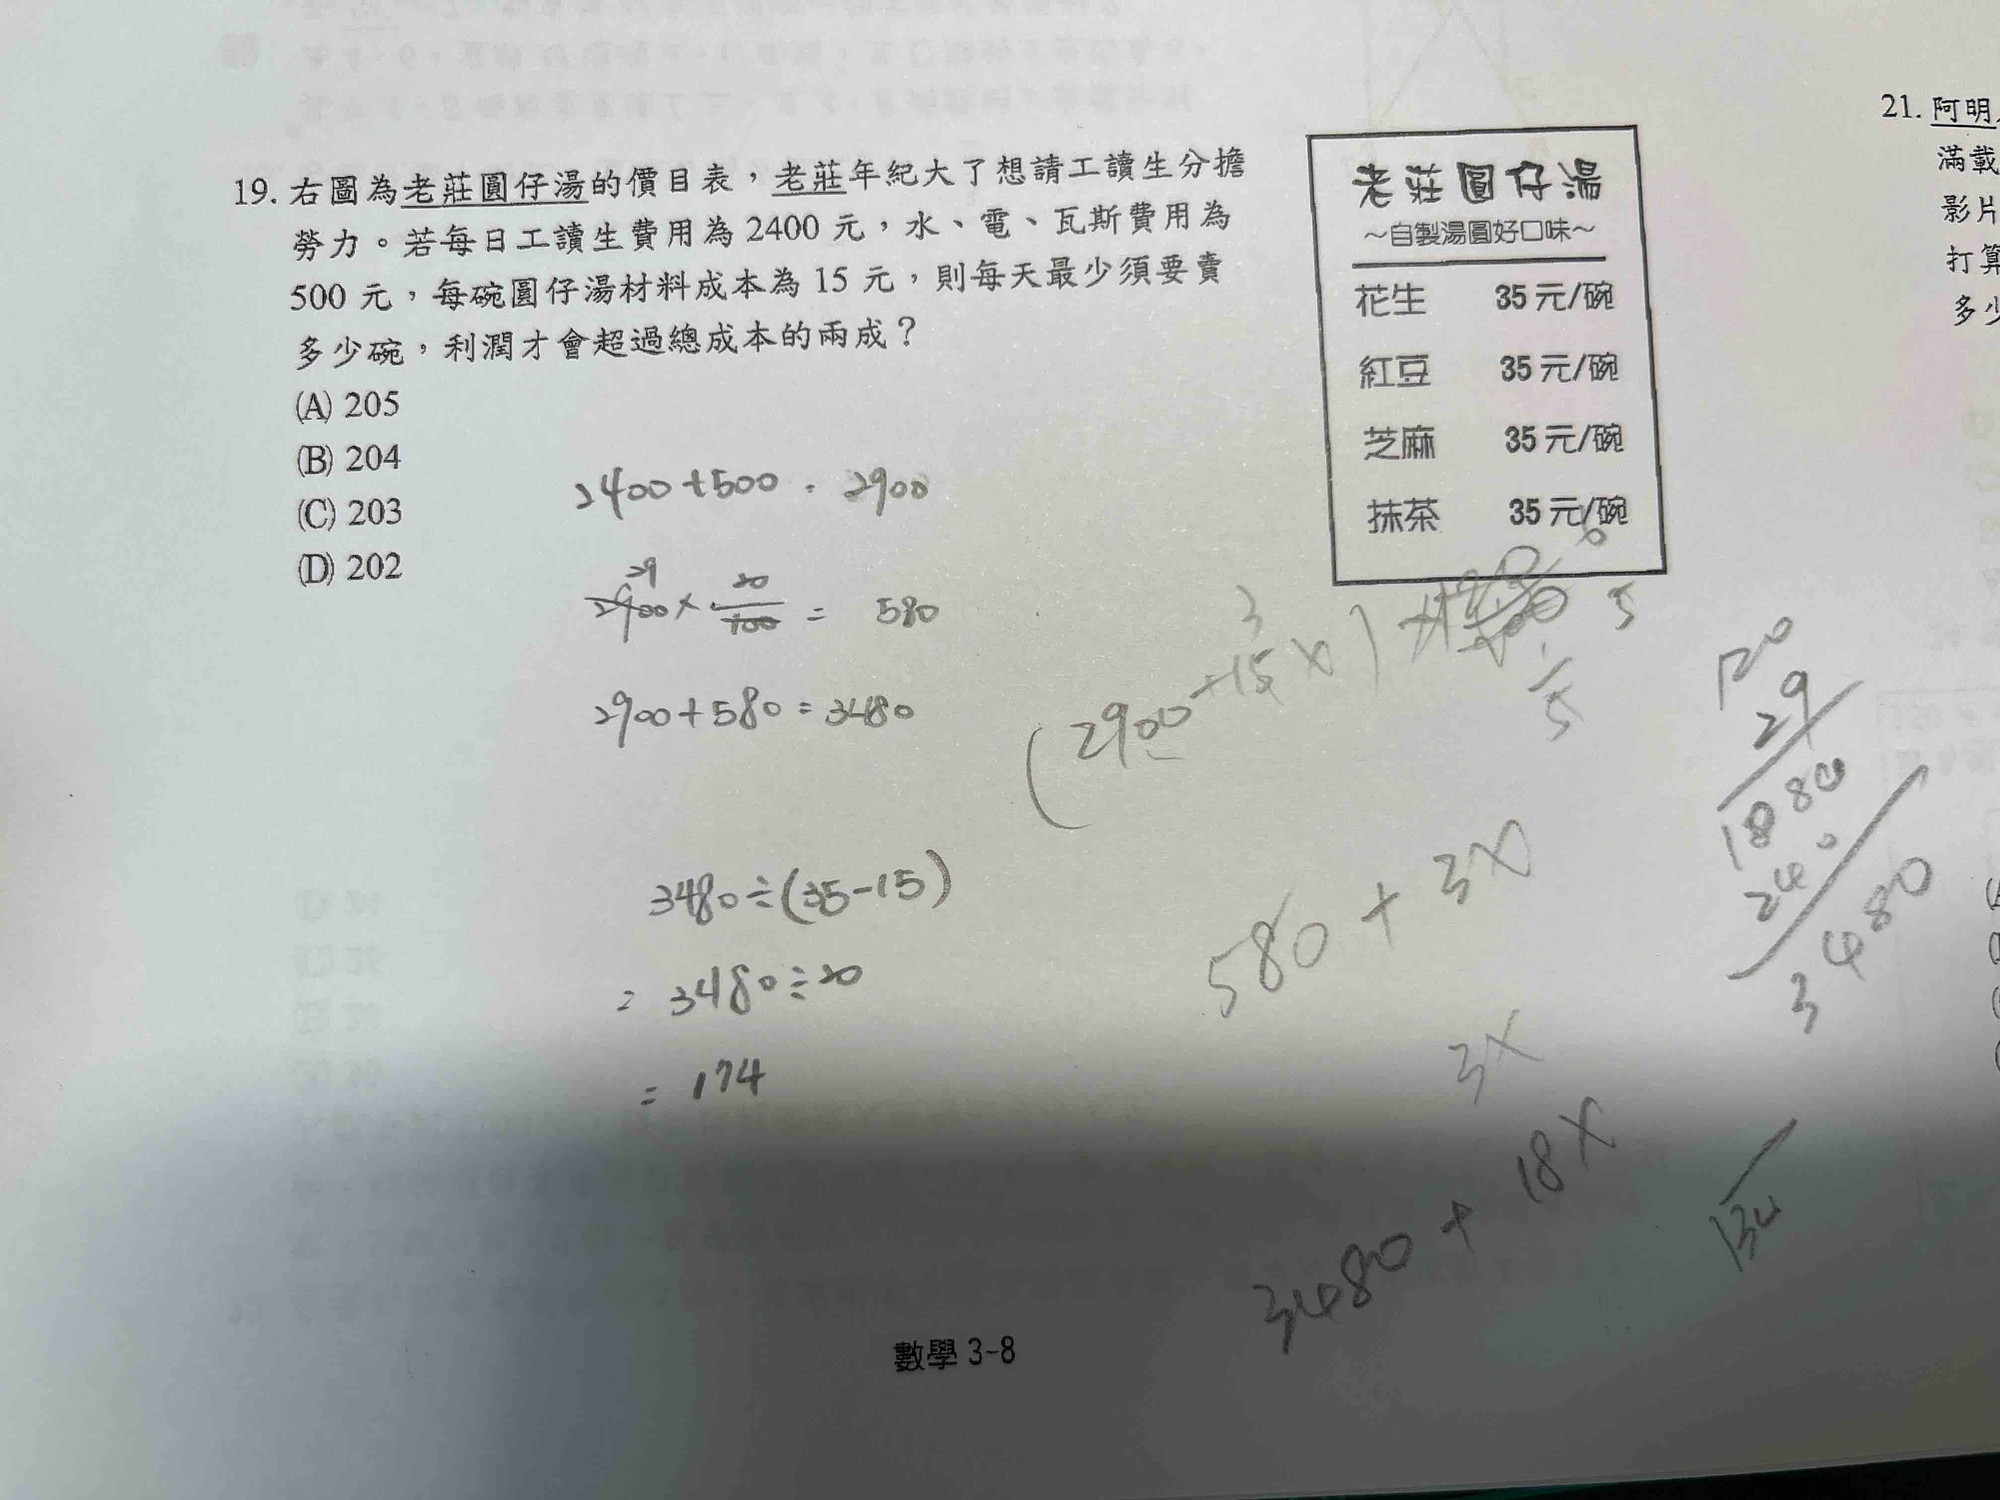 19. 右圖為老莊圓仔湯的價目表，老莊年紀大了想請工讀生分擔
勞力。若每日工讀生費用為 2400 元，水、電、瓦斯費用為
500 元，每碗圓仔湯材料成本為 15 元，則每天最少須要賣
多少碗，利潤才會超過總成本的兩成？
(A) 205
(B) 204
(C) 203
(D) 202
老莊圓仔湯
～自製湯圓好口味～
花生 35 元/碗
紅豆 35 元/碗
芝麻 35 元/碗
抹茶 35 元/碗
2400+500 = 2900
29
2900 × 20/100 = 580
2900+580=3480
3480÷(35-15)
= 3480÷20
= 174
3
(2900+15X)
1/5
5
580 + 3X
3X
3480 + 18X
120
29
1880
240
3480
134
21. 阿明
滿載
影片
打算
多少
數學 3-8